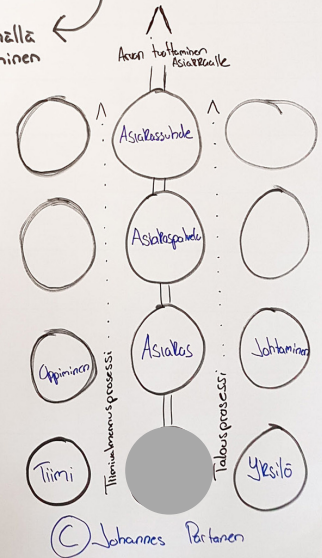 ällä
minen
Arvon tuottaminen
Asiakkaalle
Asiakassuhde
Asiakaspalvelu
Oppiminen
Asiakas
Johtaminen
Tiimivalmennusprosessi
Talousprosessi
Tiimi
Yksilö
© Johannes Partanen